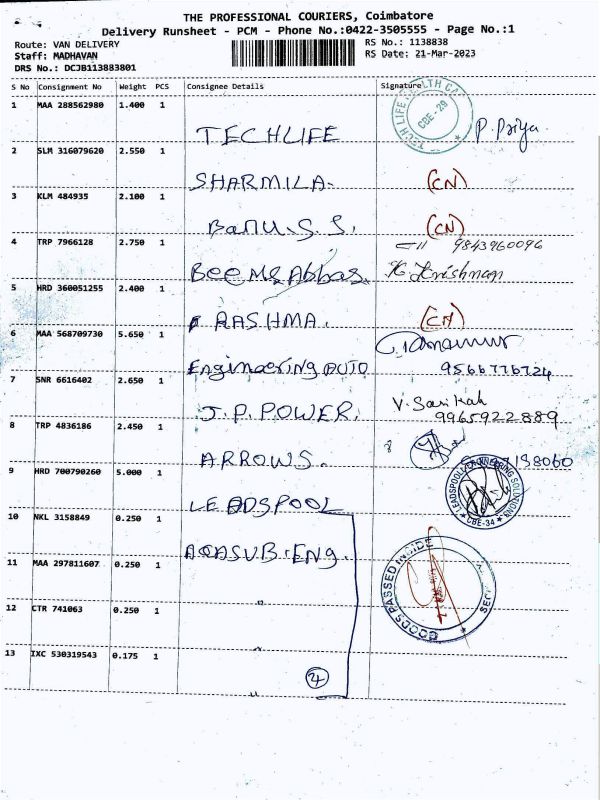 THE PROFESSIONAL COURIERS, Coimbatore
Delivery Runsheet - PCM - Phone No.:0422-3505555 - Page No.:1
Route: VAN DELIVERY
RS No.: 1138838
Staff: MADHAVAN
RS Date: 21-Mar-2023
DRS No.: DCJB113883801
S No Consignment No Weight PCS Consignee Details Signature
1 MAA 288562980 1.400 1
TECHLIFE P. Priya
TECH LIFE HEALTH CA
CBE-29
2 SLM 316079620 2.550 1
SHARMILA. (CN)
3 KLM 484935 2.100 1
Banu. S. S. (CN)
4 TRP 7966128 2.750 1
9843960096
Bee Me Abbas. K. Krishnan
5 HRD 360051255 2.400 1
RASHMA. (CN)
6 MAA 568709730 5.650 1
Engineering AUTO
9566776724
7 SNR 6616402 2.650 1
J. P. POWER. V. Sarikah
9965922889
8 TRP 4836186 2.450 1
ARROWS. 198060
9 HRD 700790260 5.000 1
LEADSPOOL
LEADSPOOL ENGINEERING SOLUTIONS
CBE-34
10 NKL 3158849 0.250 1
AQASUB. Eng.
11 MAA 297811607 0.250 1
"
GOODS PASSED INSIDE
12 CTR 741063 0.250 1
"
13 IXC 530319543 0.175 1
4
"